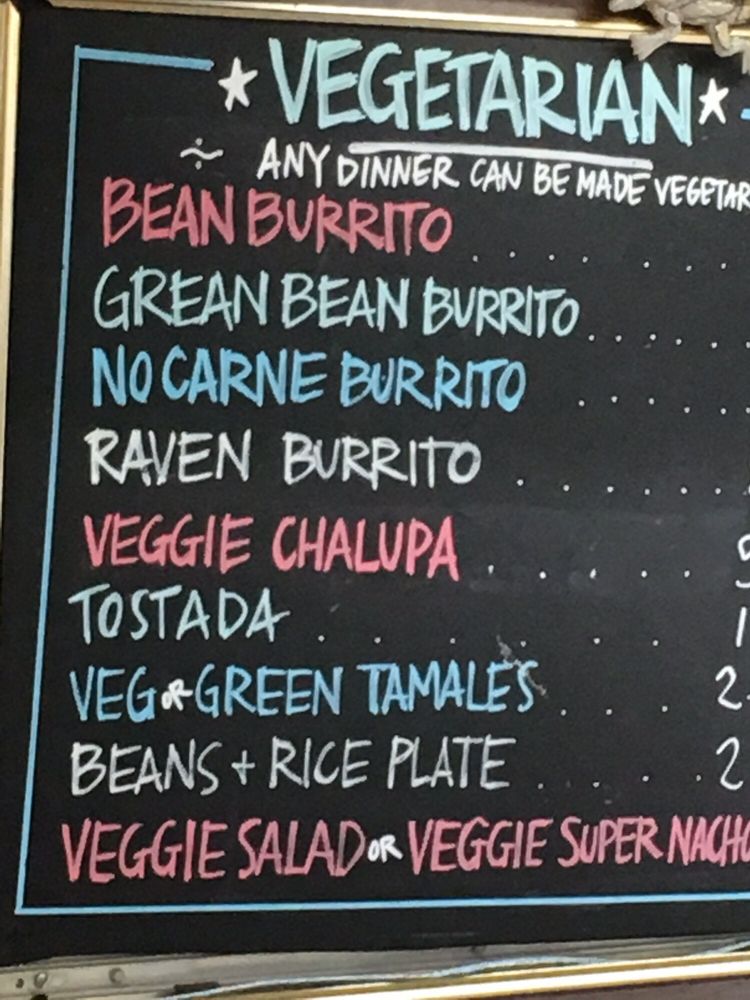 ★ VEGETARIAN ★
ANY DINNER CAN BE MADE VEGETAR
BEAN BURRITO . . . . . .
GREAN BEAN BURRITO . . . . . .
NO CARNE BURRITO . . . . .
RAVEN BURRITO . . . . . .
VEGGIE CHALUPA . . . . .
TOSTADA . . . . . . 1
VEG OR GREEN TAMALES . . . 2
BEANS + RICE PLATE . . . . 2
VEGGIE SALAD OR VEGGIE SUPER NACHO